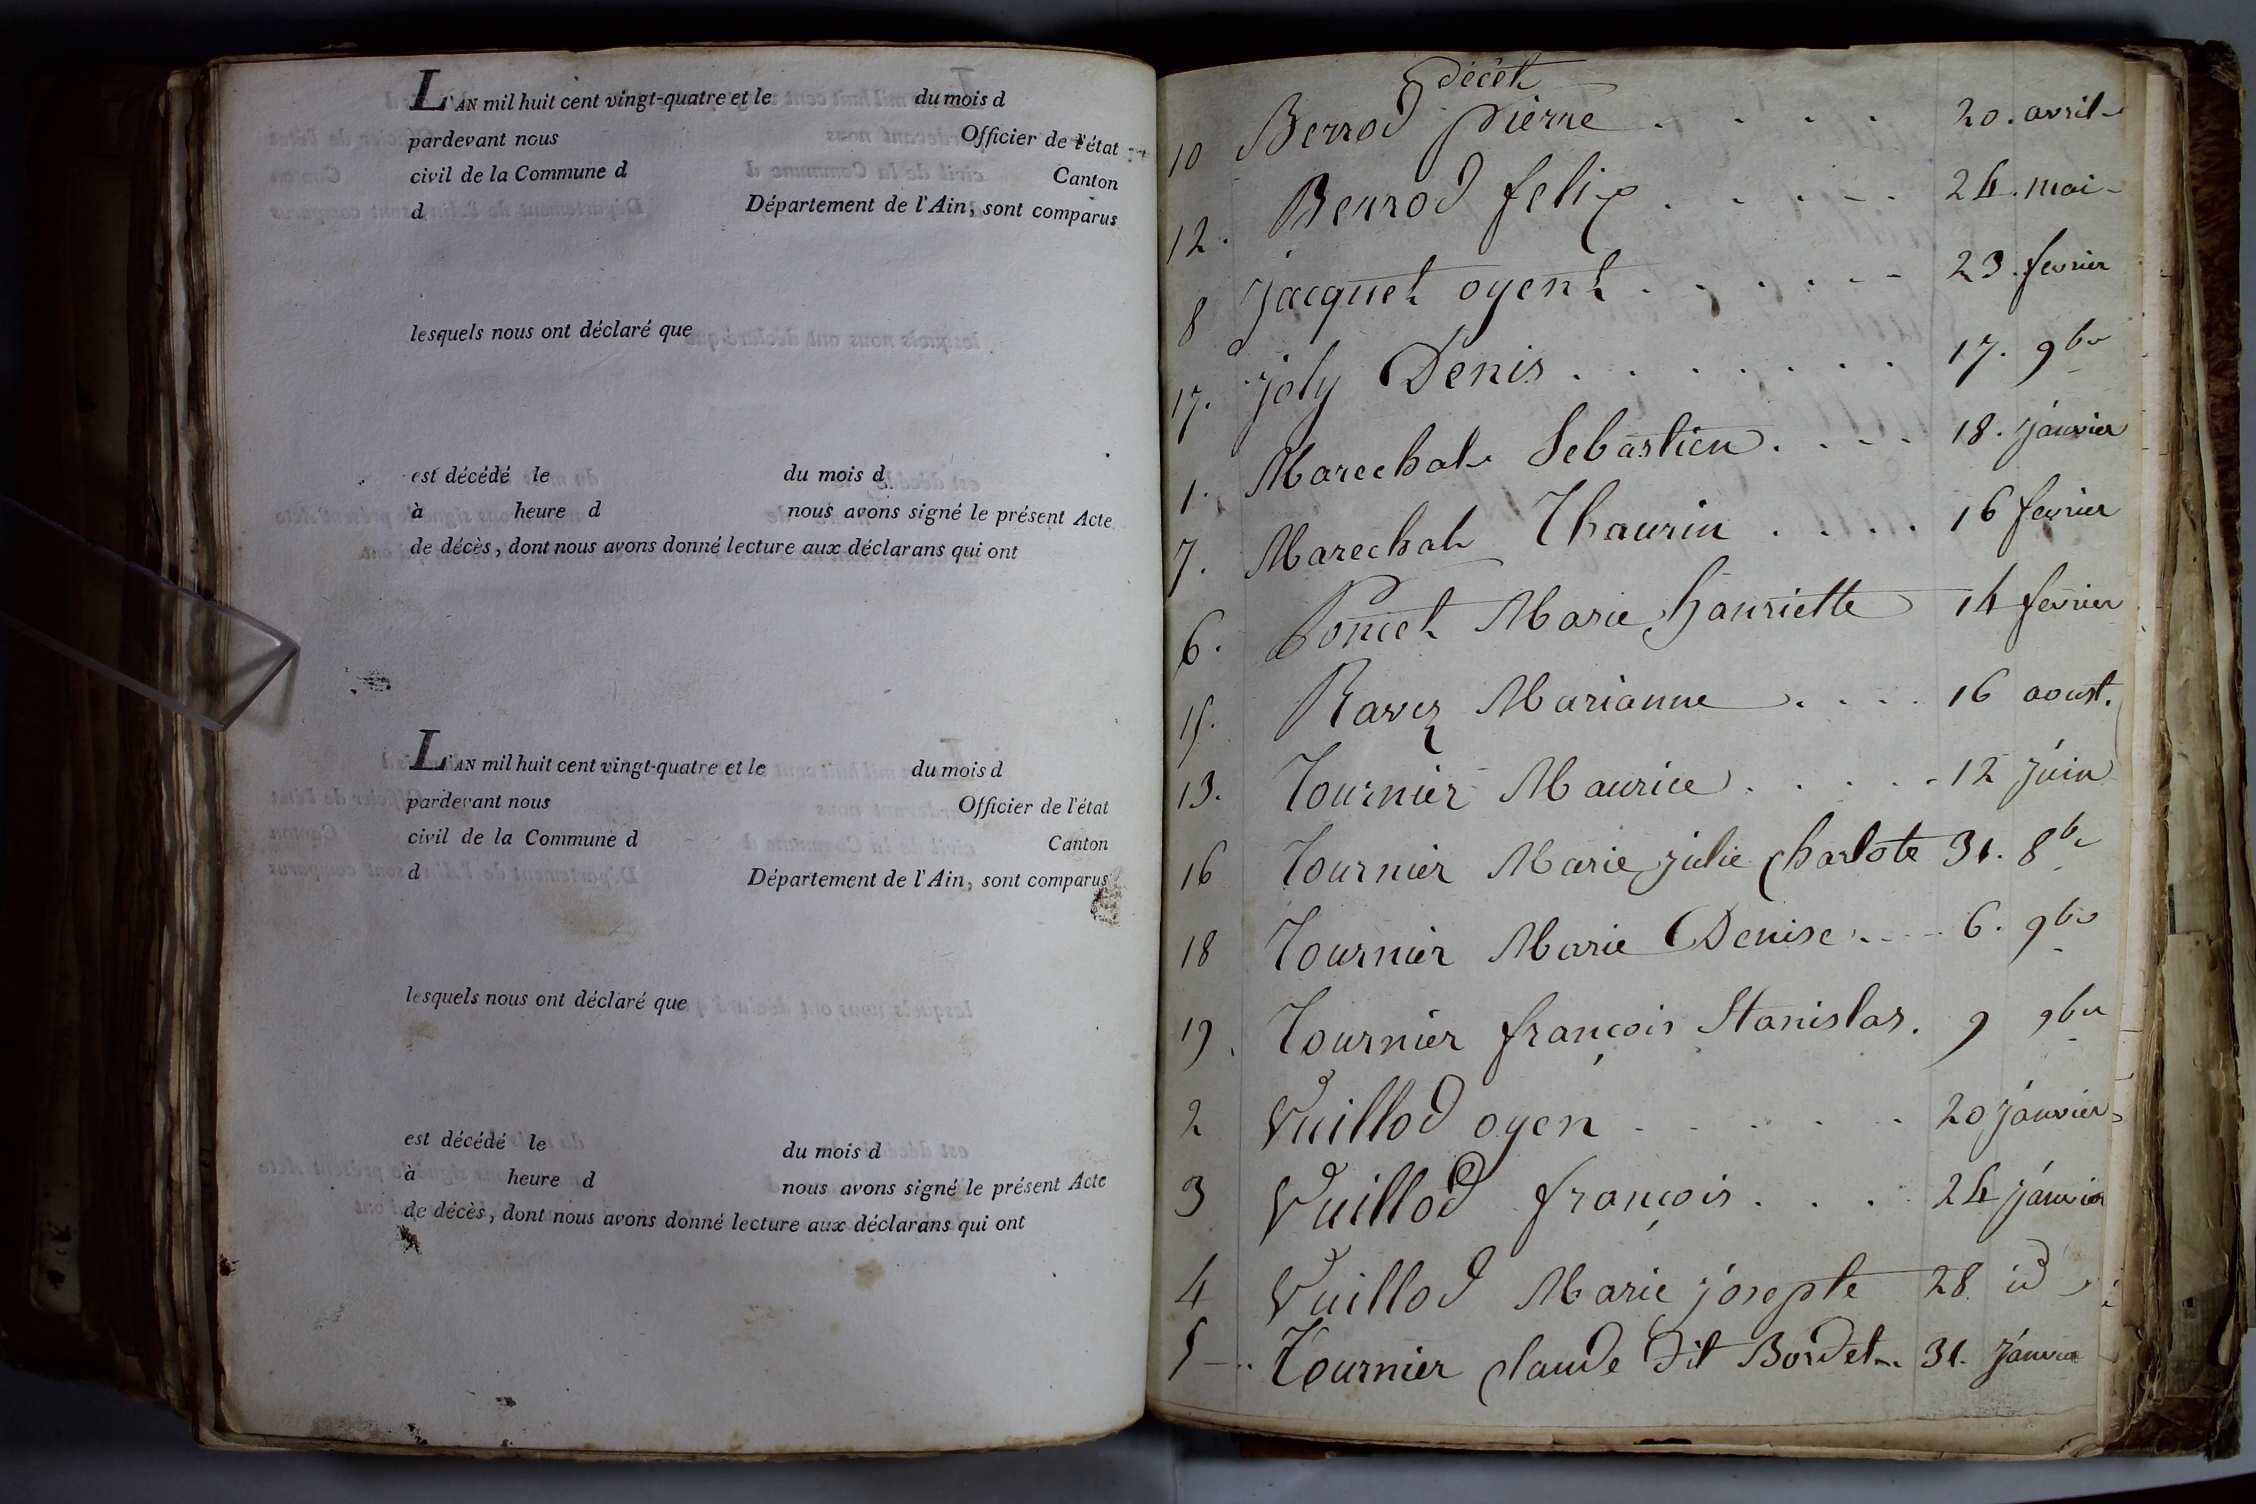 L'AN mil huit cent vingt-quatre et le du mois d
pardevant nous Officier de l'état
civil de la Commune d Canton
d Département de l'Ain, sont comparus
lesquels nous ont déclaré que
est décédé le du mois d
à heure d nous avons signé le présent Acte
de décès, dont nous avons donné lecture aux déclarans qui ont
L'AN mil huit cent vingt-quatre et le du mois d
pardevant nous Officier de l'état
civil de la Commune d Canton
d Département de l'Ain, sont comparus
lesquels nous ont déclaré que
est décédé le du mois d
à heure d nous avons signé le présent Acte
de décès, dont nous avons donné lecture aux déclarans qui ont
décét
10 Berrod pierre . . . . 20. avril
12. Berrod felix . . . . . 24. mai
8 Jacquet oyent . . . . . . 23. fevrier
17. Joly Denis . . . . . . . . 17. 9bre
1. Marechal Sebastien . . . . 18. Janvier
7. Marechal Thaurin . . . . 16 fevrier
6. Poncet Marie hanriette 14 fevrier
15. Ravez Marianne . . . . 16 aoust.
13. Tournier Maurice . . . . . 12 Juin
16 Tournier Marie julie charlote 31. 8bre
18 Tournier Marie Denise . . . . 6. 9bre
19. Tournier françois Stanislas. 9 9bre
2 Vuillod oyen . . . . . . 20 Janvier
3 Vuillod françois . . . . 24 Janvier
4 Vuillod Marie josephte 28 id
5 Tournier claude dit Bordet. 31. Janvier